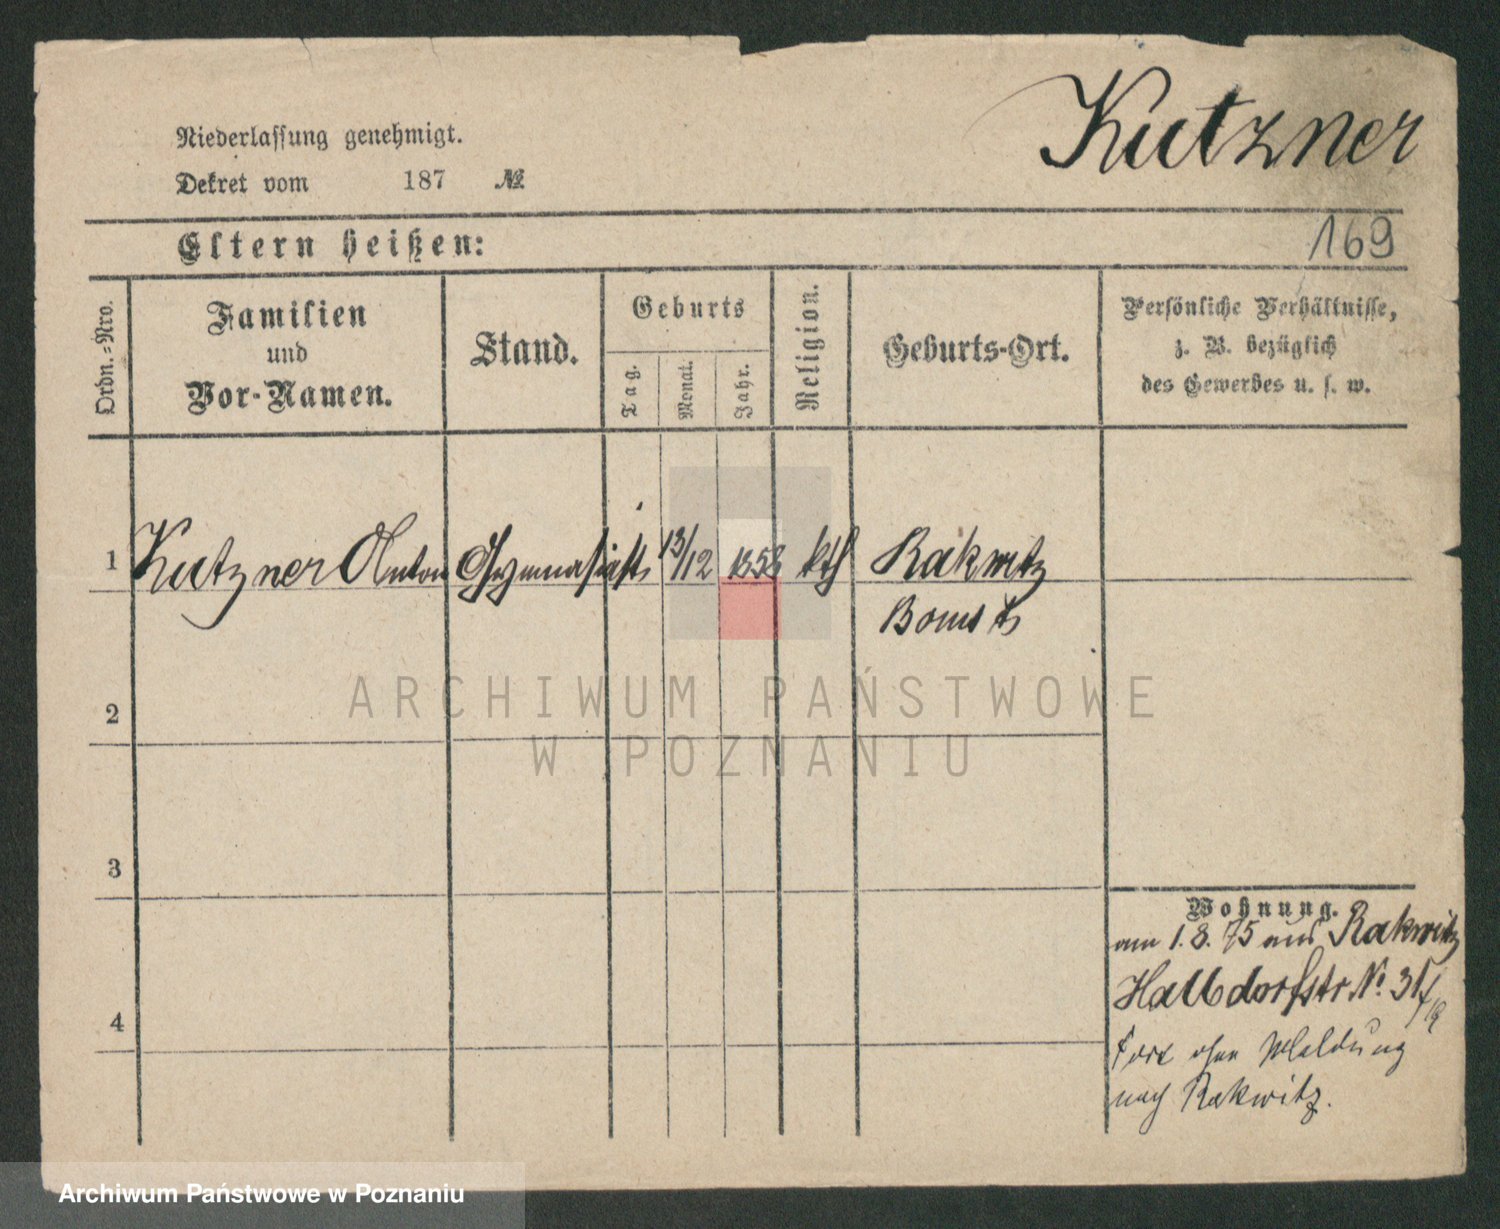 Kutzner
Niederlassung genehmigt.
Dekret vom 187 №
169
Eltern heißen:
Ordn.-Nro.
Familien
und
Vor-Namen.
Stand.
Geburts
Tag.
Monat.
Jahr.
Religion.
Geburts-Ort.
Persönliche Verhältnisse,
z. B. bezüglich
des Gewerbes u. s. w.
1 Kutzner Anton Gymnasiast 13/12 1858 kth Rakwitz
Bomst
2
3
4
Wohnung.
am 1.8.75 aus Rakwitz
Halbdorfstr No. 31
fort ohne Meldung
nach Rakwitz.
ARCHIWUM PAŃSTWOWE
W POZNANIU
Archiwum Państwowe w Poznaniu